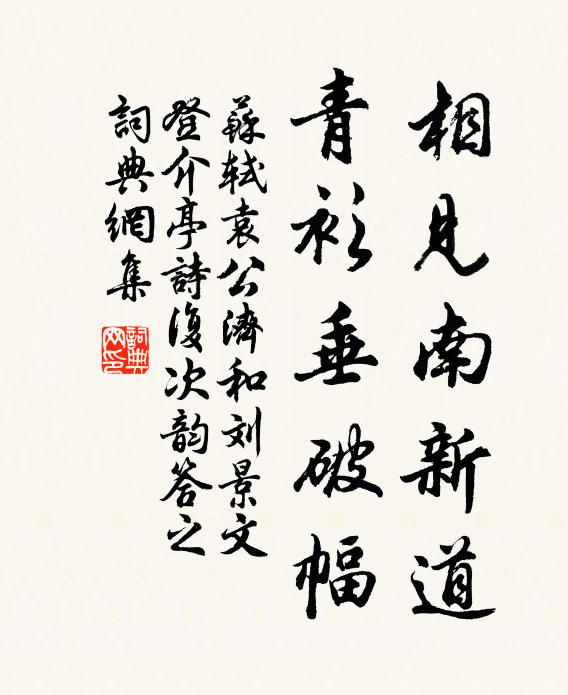 相見南新道
青衫垂破幅
蘇軾袁公濟和刘景文
登介亭詩復次韵答之
詞典網集
詞典
网印